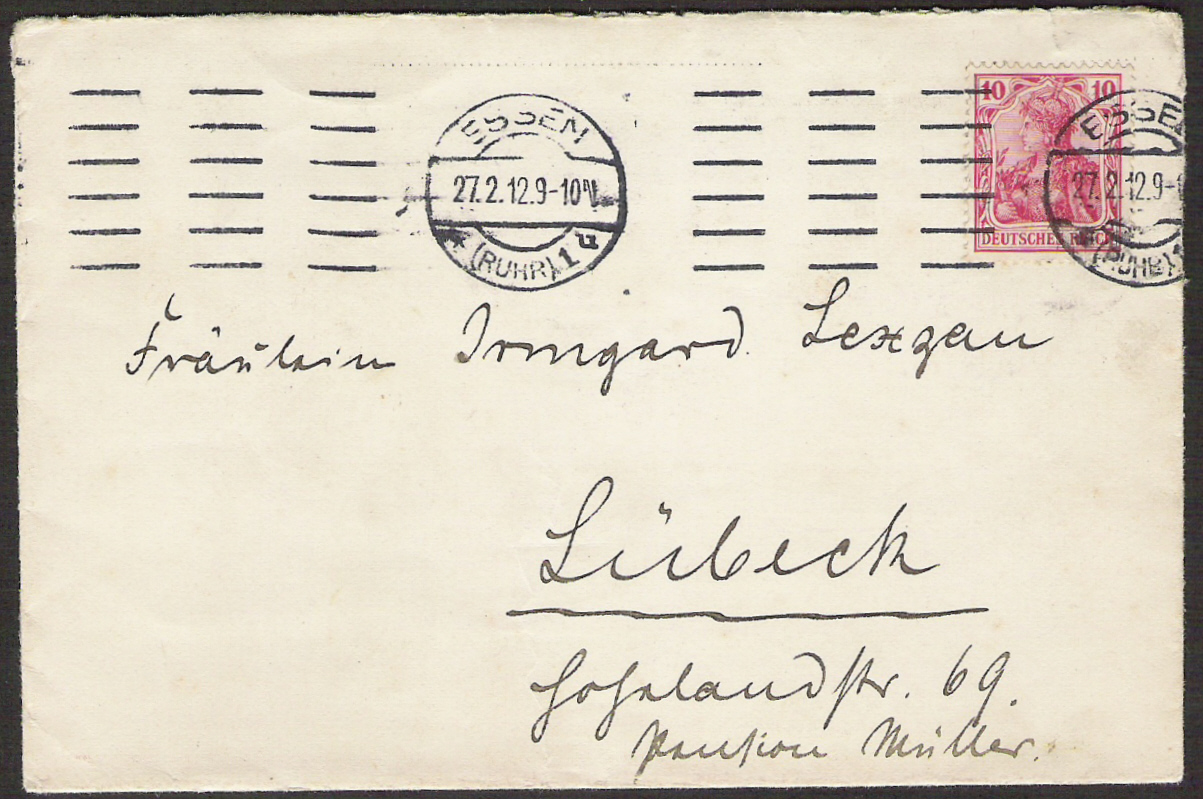 ESSEN
27.2.12.9-10V.
(RUHR) 1
10 10
DEUTSCHES REICH
ESSEN
27.2.12.9-1
(RUHR)
Fräulein Irmgard Lexzau
Lübeck
Hohelandstr. 69.
Pension Müller.